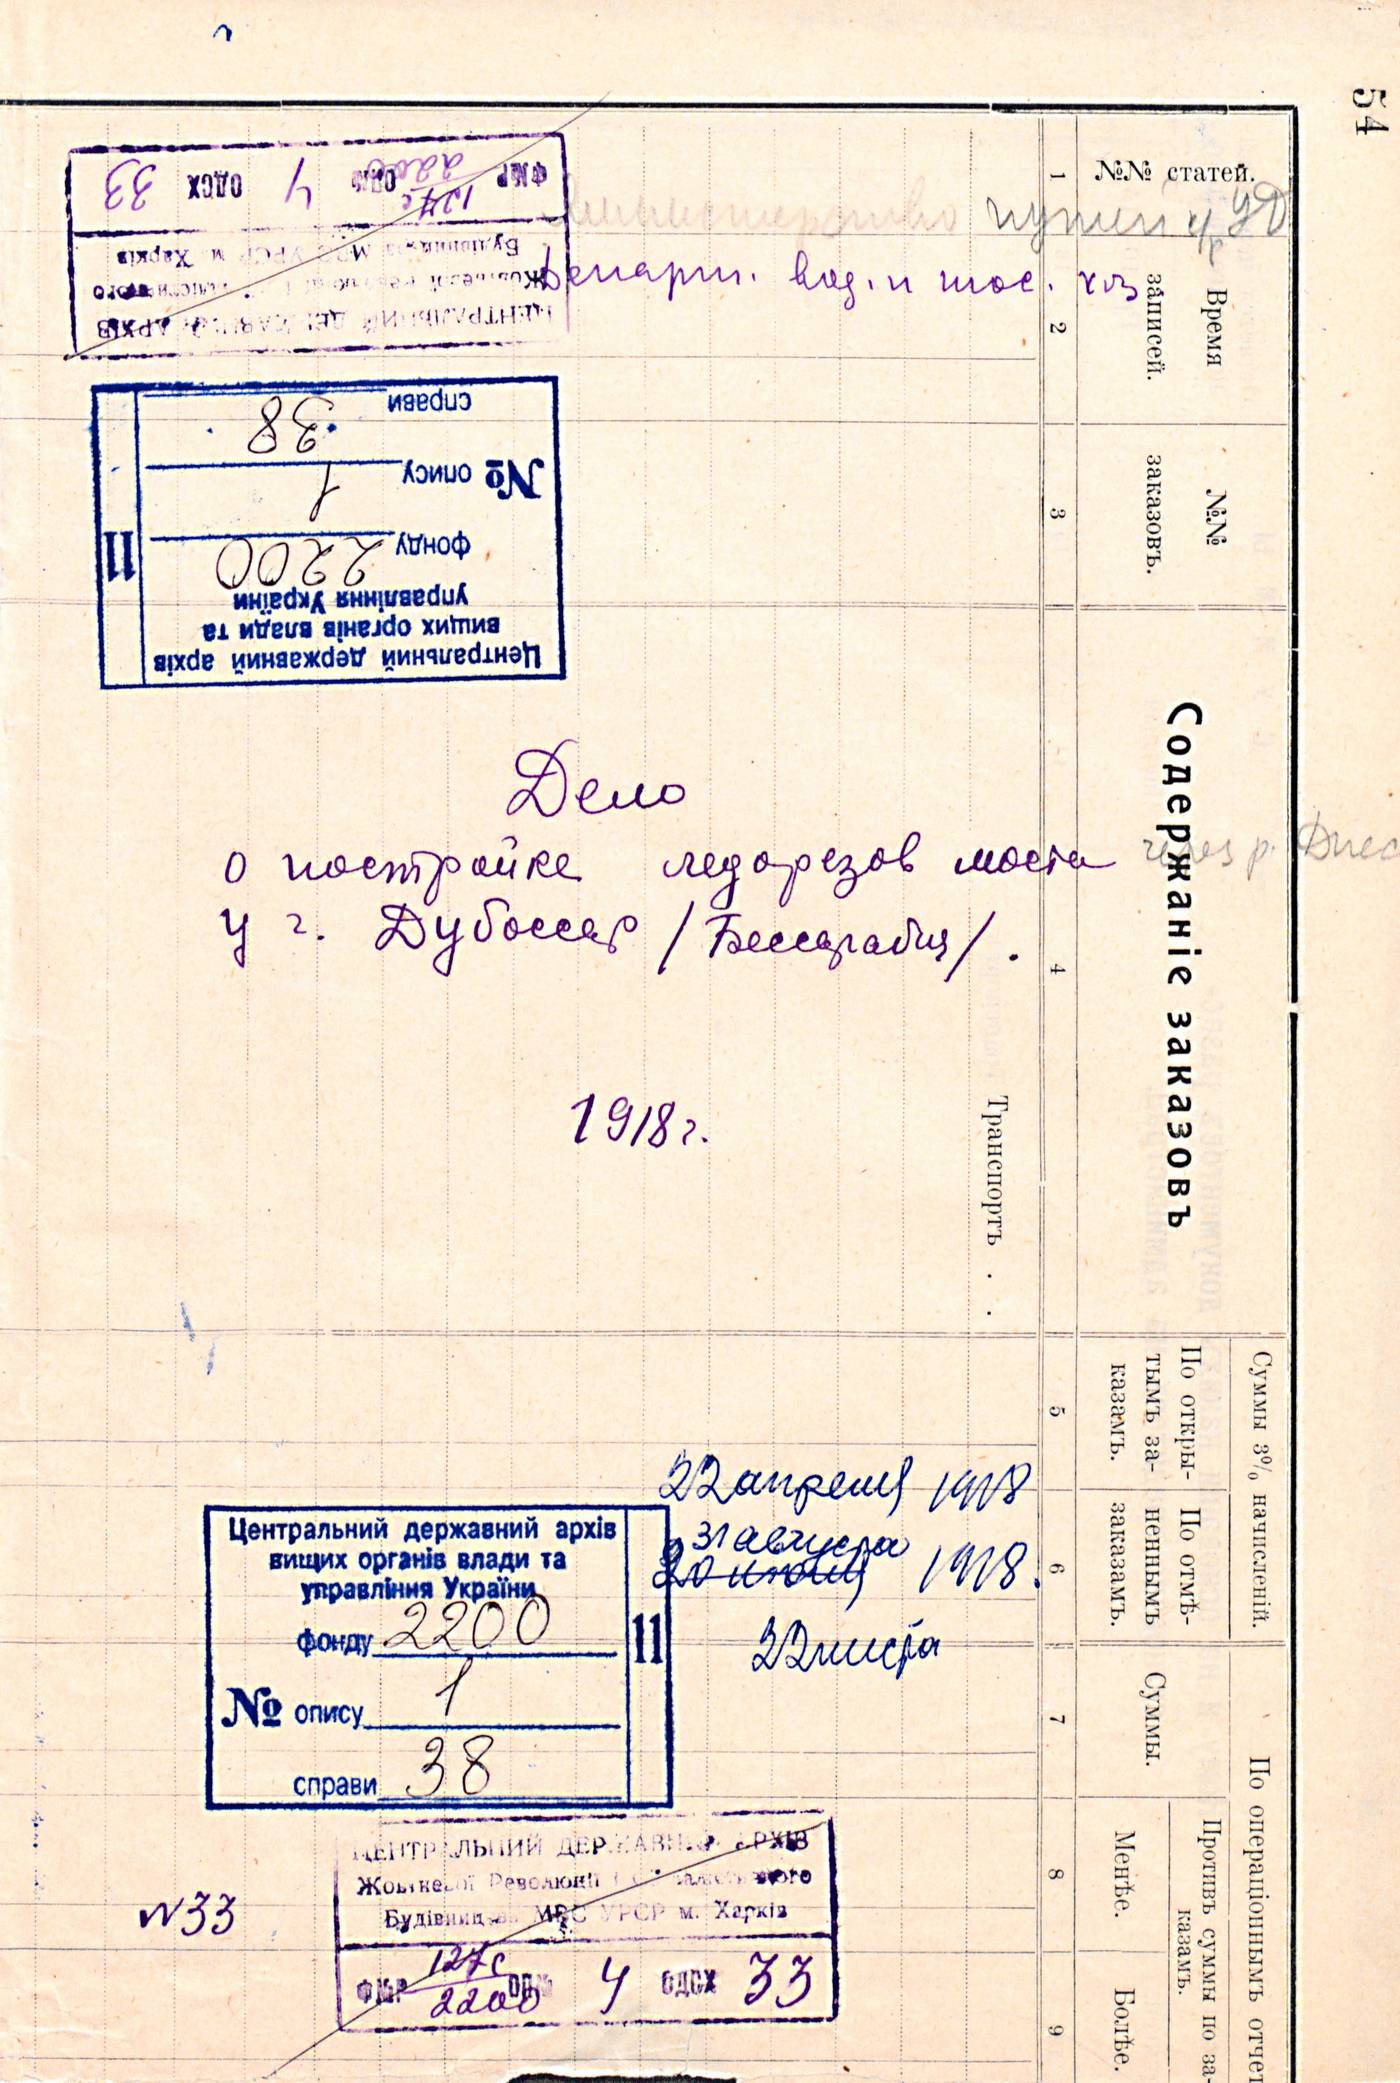 54
№№ статей.
Время записей.
№№ заказовъ.
Содержаніе заказовъ
Суммы 3% начисленій.
По откры-
тымъ за-
казамъ.
По отмѣ-
неннымъ
заказамъ.
По операціоннымъ отчет
Суммы.
Противъ суммы по за-
казамъ.
Менѣе.
Болѣе.
1
2
3
4
5
6
7
8
9
Транспортъ . .
Министерство путей
Департ. вод. и шос. хоз
ФМР 127с/2200 4 ОДСХ 33
ЦЕНТРАЛЬНИЙ ДЕРЖАВНИЙ АРХІВ
Жовтневої Революції і Соціалістичного
Будівництва МВС УРСР м. Харків
Центральний державний архів
вищих органів влади та
управління України
фонду 2200
№ опису 1
справи 38
11
Дело
о постройке ледорезов моста через р. Днес
у г. Дубоссар /Бессарабия/.
1918 г.
22 апреля 1918
31 августа
20 июля 1918.
22 листа
Центральний державний архів
вищих органів влади та
управління України
фонду 2200
№ опису 1
справи 38
11
ЦЕНТРАЛЬНИЙ ДЕРЖАВНИЙ АРХІВ
Жовтневої Революції і Соціалістичного
Будівництва МВС УРСР м. Харків
ФМР 127с/2200 4 ОДСХ 33
№33